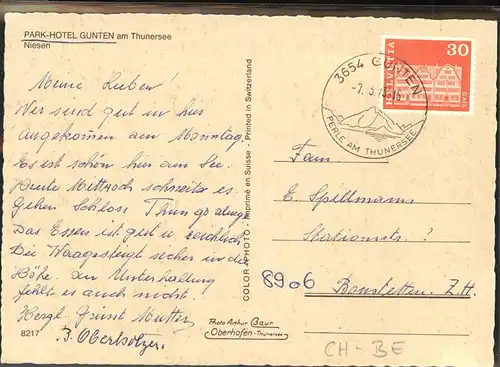 PARK-HOTEL GUNTEN am Thunersee
Niesen
Meine Lieben!
Wir sind gut in hier
angekommen am Montag.
Es ist schön hier am See.
Heute Mittwoch schneits es
Gehen Schloss Thun go
Das Essen ist gut u. reichlich
Die Waage steigt sicher in die
Höhe. An Unterhaltung
fehlt es auch nicht.
Herzl. Grüsst Mutter
J. Oberholzer.
8217
COLOR-PHOTO - Imprimé en Suisse - Printed in Switzerland
Photo Arthur Baur
Oberhofen-Thunersee
3654 GUNTEN
PERLE AM THUNERSEE
HELVETIA
30
GAIS
Fam.
E. Spillmann
Stationstr. ?
8906 Bonstetten. Z.H.
CH-BE